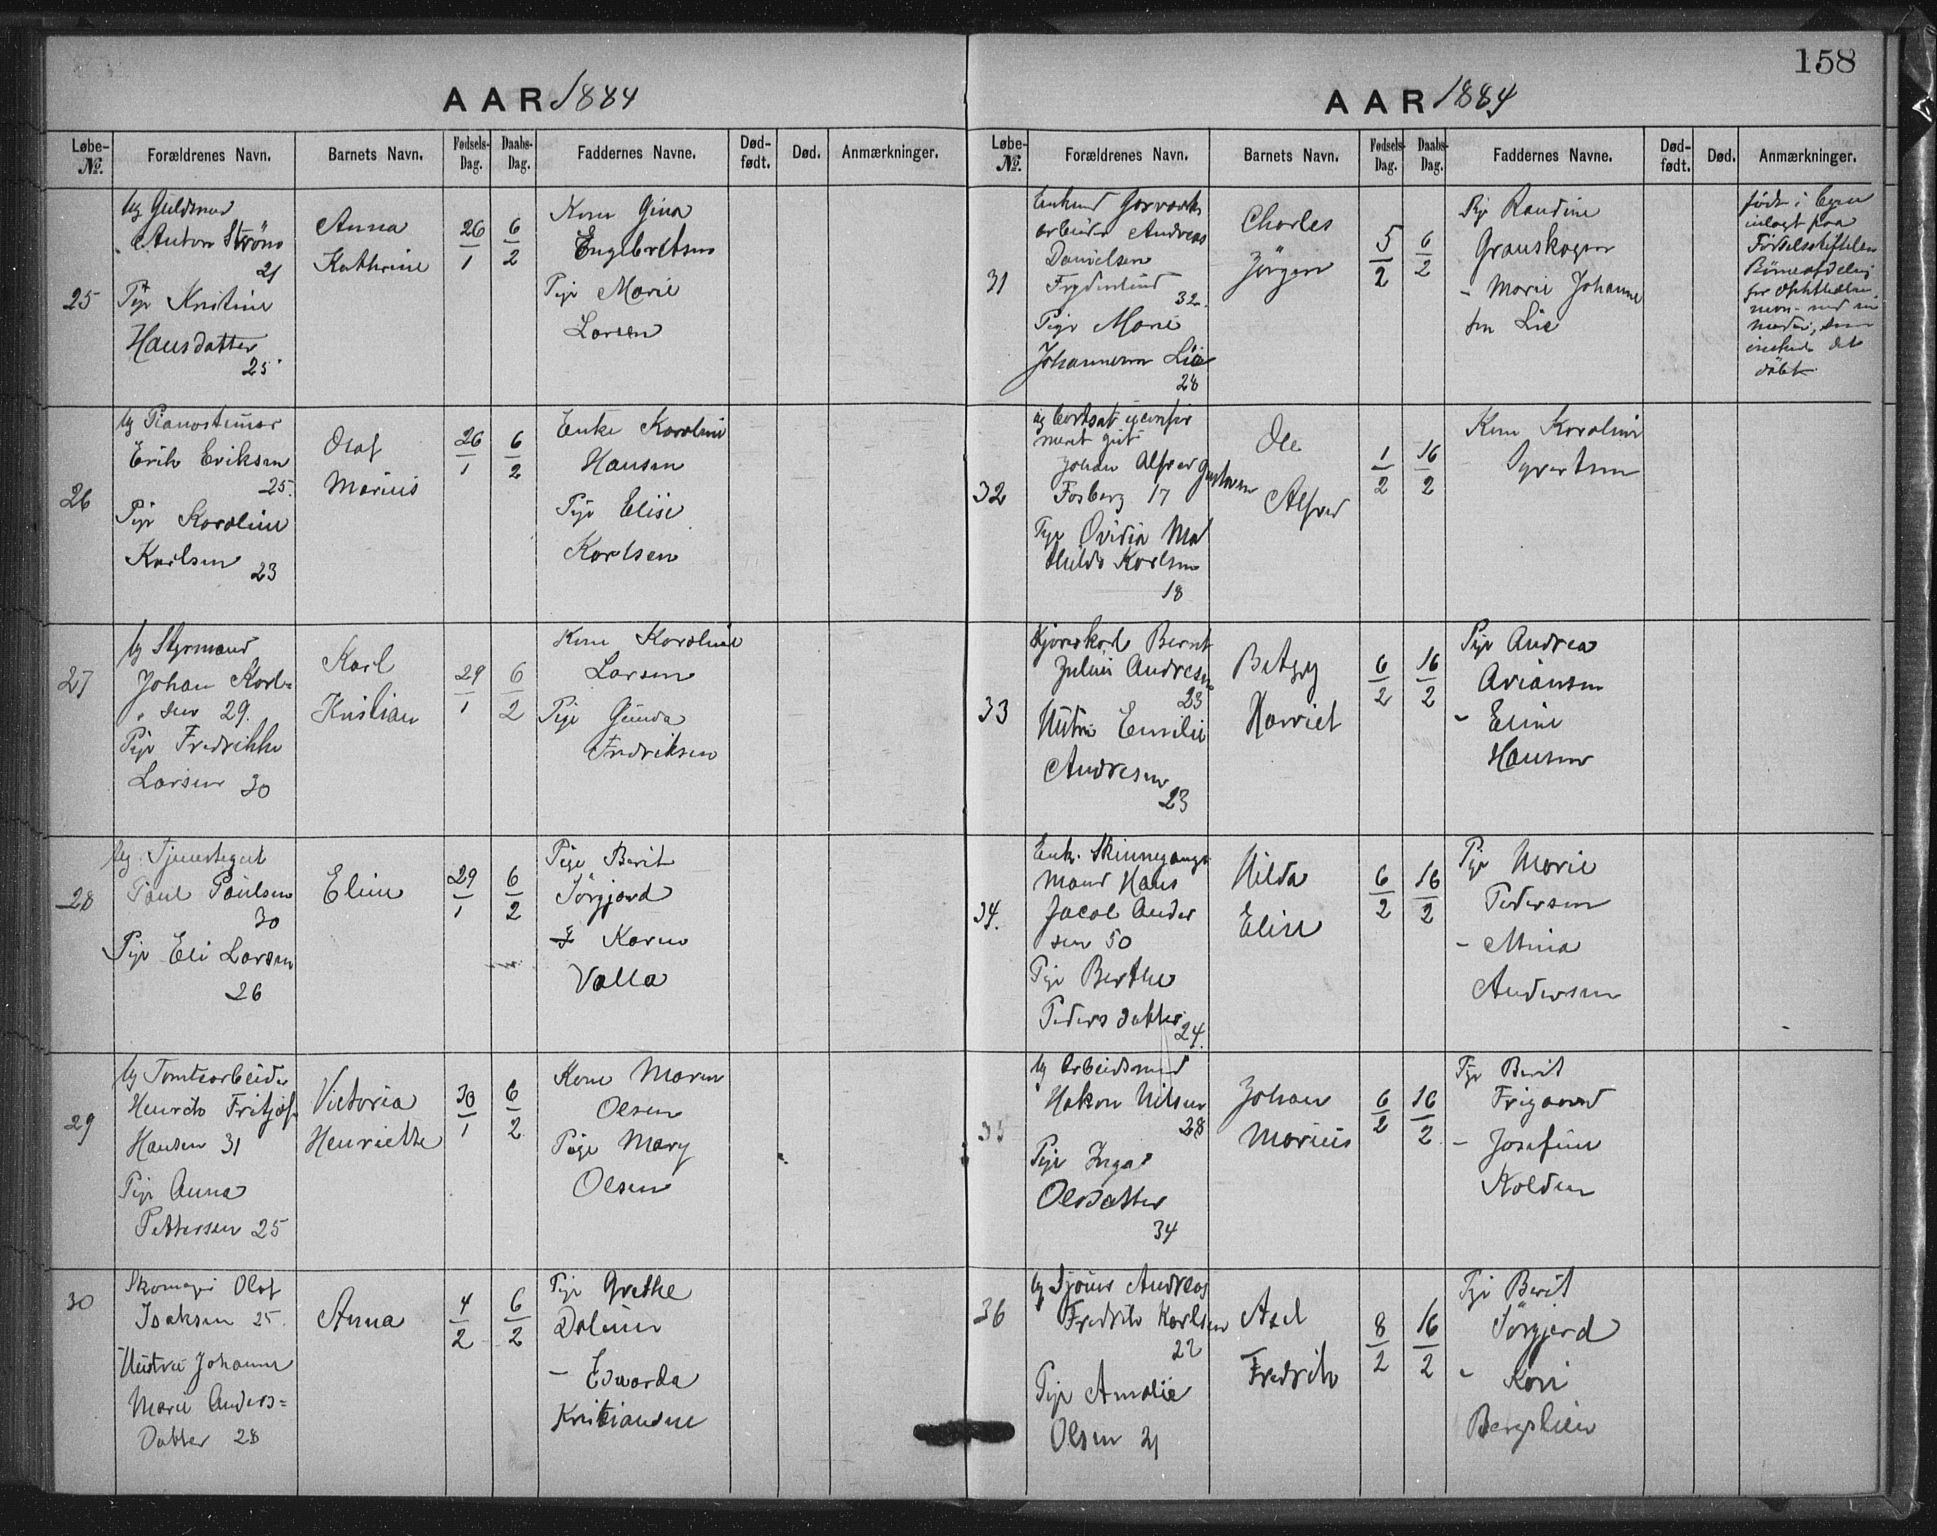 158
AAR 1884
Løbe-
№.
Forældrenes Navn.
Barnets Navn.
Fødsels-
Dag.
Daabs-
Dag.
Faddernes Navne.
Død-
født.
Død.
Anmærkninger.
25
Ug Guldsmed
Anton Strøm
21
Pige Kristine
Hansdatter
25
Anna
Kathrine
26/1
6/2
Kone Gina
Engebretsen
Pige Marie
Larsen
26
Ug Pianostemmer
Erik Eriksen
25.
Pige Karoline
Karlsen 23
Olaf
Marius
26/1
6/2
Enke Karoline
Hansen
Pige Elise
Karlsen
27
Ug Styrmand
Johan Karl-
sen 29.
Pige Fredrikke
Larsen 30
Karl
Kristian
29/1
6/2
Kone Karoline
Larsen
Pige Gunda
Fredriksen
28
Ug. Tjenestegut
Paul Paulsen
30
Pige Eli Larsen
26
Eline
29/1
6/2
Pige Berit
Sørgjerd
Karen
Valla
29
Ug Tomtearbeider
Henrik Fritjof
Hansen 31
Pige Anna
Pettersen 25
Victoria
Henriette
30/1
6/2
Kone Maren
Olsen
Pige Mary
Olsen
30
Skomager Olaf
Isaksen 25.
Hustru Johanne
Marie Anders=
Datter 28
Anna
4/2
6/2
Pige Grethe
Dalene
— Edvarda
Kristiansen
AAR 1884
Løbe-
№.
Forældrenes Navn.
Barnets Navn.
Fødsels-
Dag.
Daabs-
Dag.
Faddernes Navne.
Død-
født.
Død.
Anmærkninger.
31
Enkemd Gasværks
arbeider Andreas
Danielsen
Frydenlund
32.
Pige Marie
Johannesen Lie
28
Charles
Jørgen
5/2
6/2
Pige Randine
Granskogen
— Marie Johanne
sen Lie
født i Byen
indlagt paa
Fødselsstiftelsen
Børneafdeling
for
med sin
moder, som
ønskede det
døbt.
32
ug Bortsat ukonfir
meret gut
Johan Alfred Gustavsen
Fosberg 17
Pige Ovidia Ma
thilde Karlsen
18
Ole
Alfred
1/2
16/2
Kone Karoline
Syvertsen
33
Kjørekarl Bernt
Julius Andresen
23
Hustru Emilie
Andresen
23
Betzy
Harriet
6/2
16/2
Pige Andrea
Ariansen
— Eline
Hansen
34.
Enkem. Skinnegangs
mand Hans
Jacob Ander
sen 50
Pige Berthe
Pedersdatter
24.
Hilda
Elise
6/2
16/2
Pige Marie
Pedersen
— Mina
Andersen
35
Ug Arbeidsmd
Hakon Nilsen
28
Pige Inga
Olsdatter
34
Johan
Marius
6/2
16/2
Pige Berit
Frigaard
— Josefine
Kolden
36
Ug Sjøm Andreas
Fredrik Karlsen
22
Pige Amalie
Olsen 21
Axel
Fredrik
8/2
16/2
Pige Berit
Sørgjerd
— Kari
Bergslien